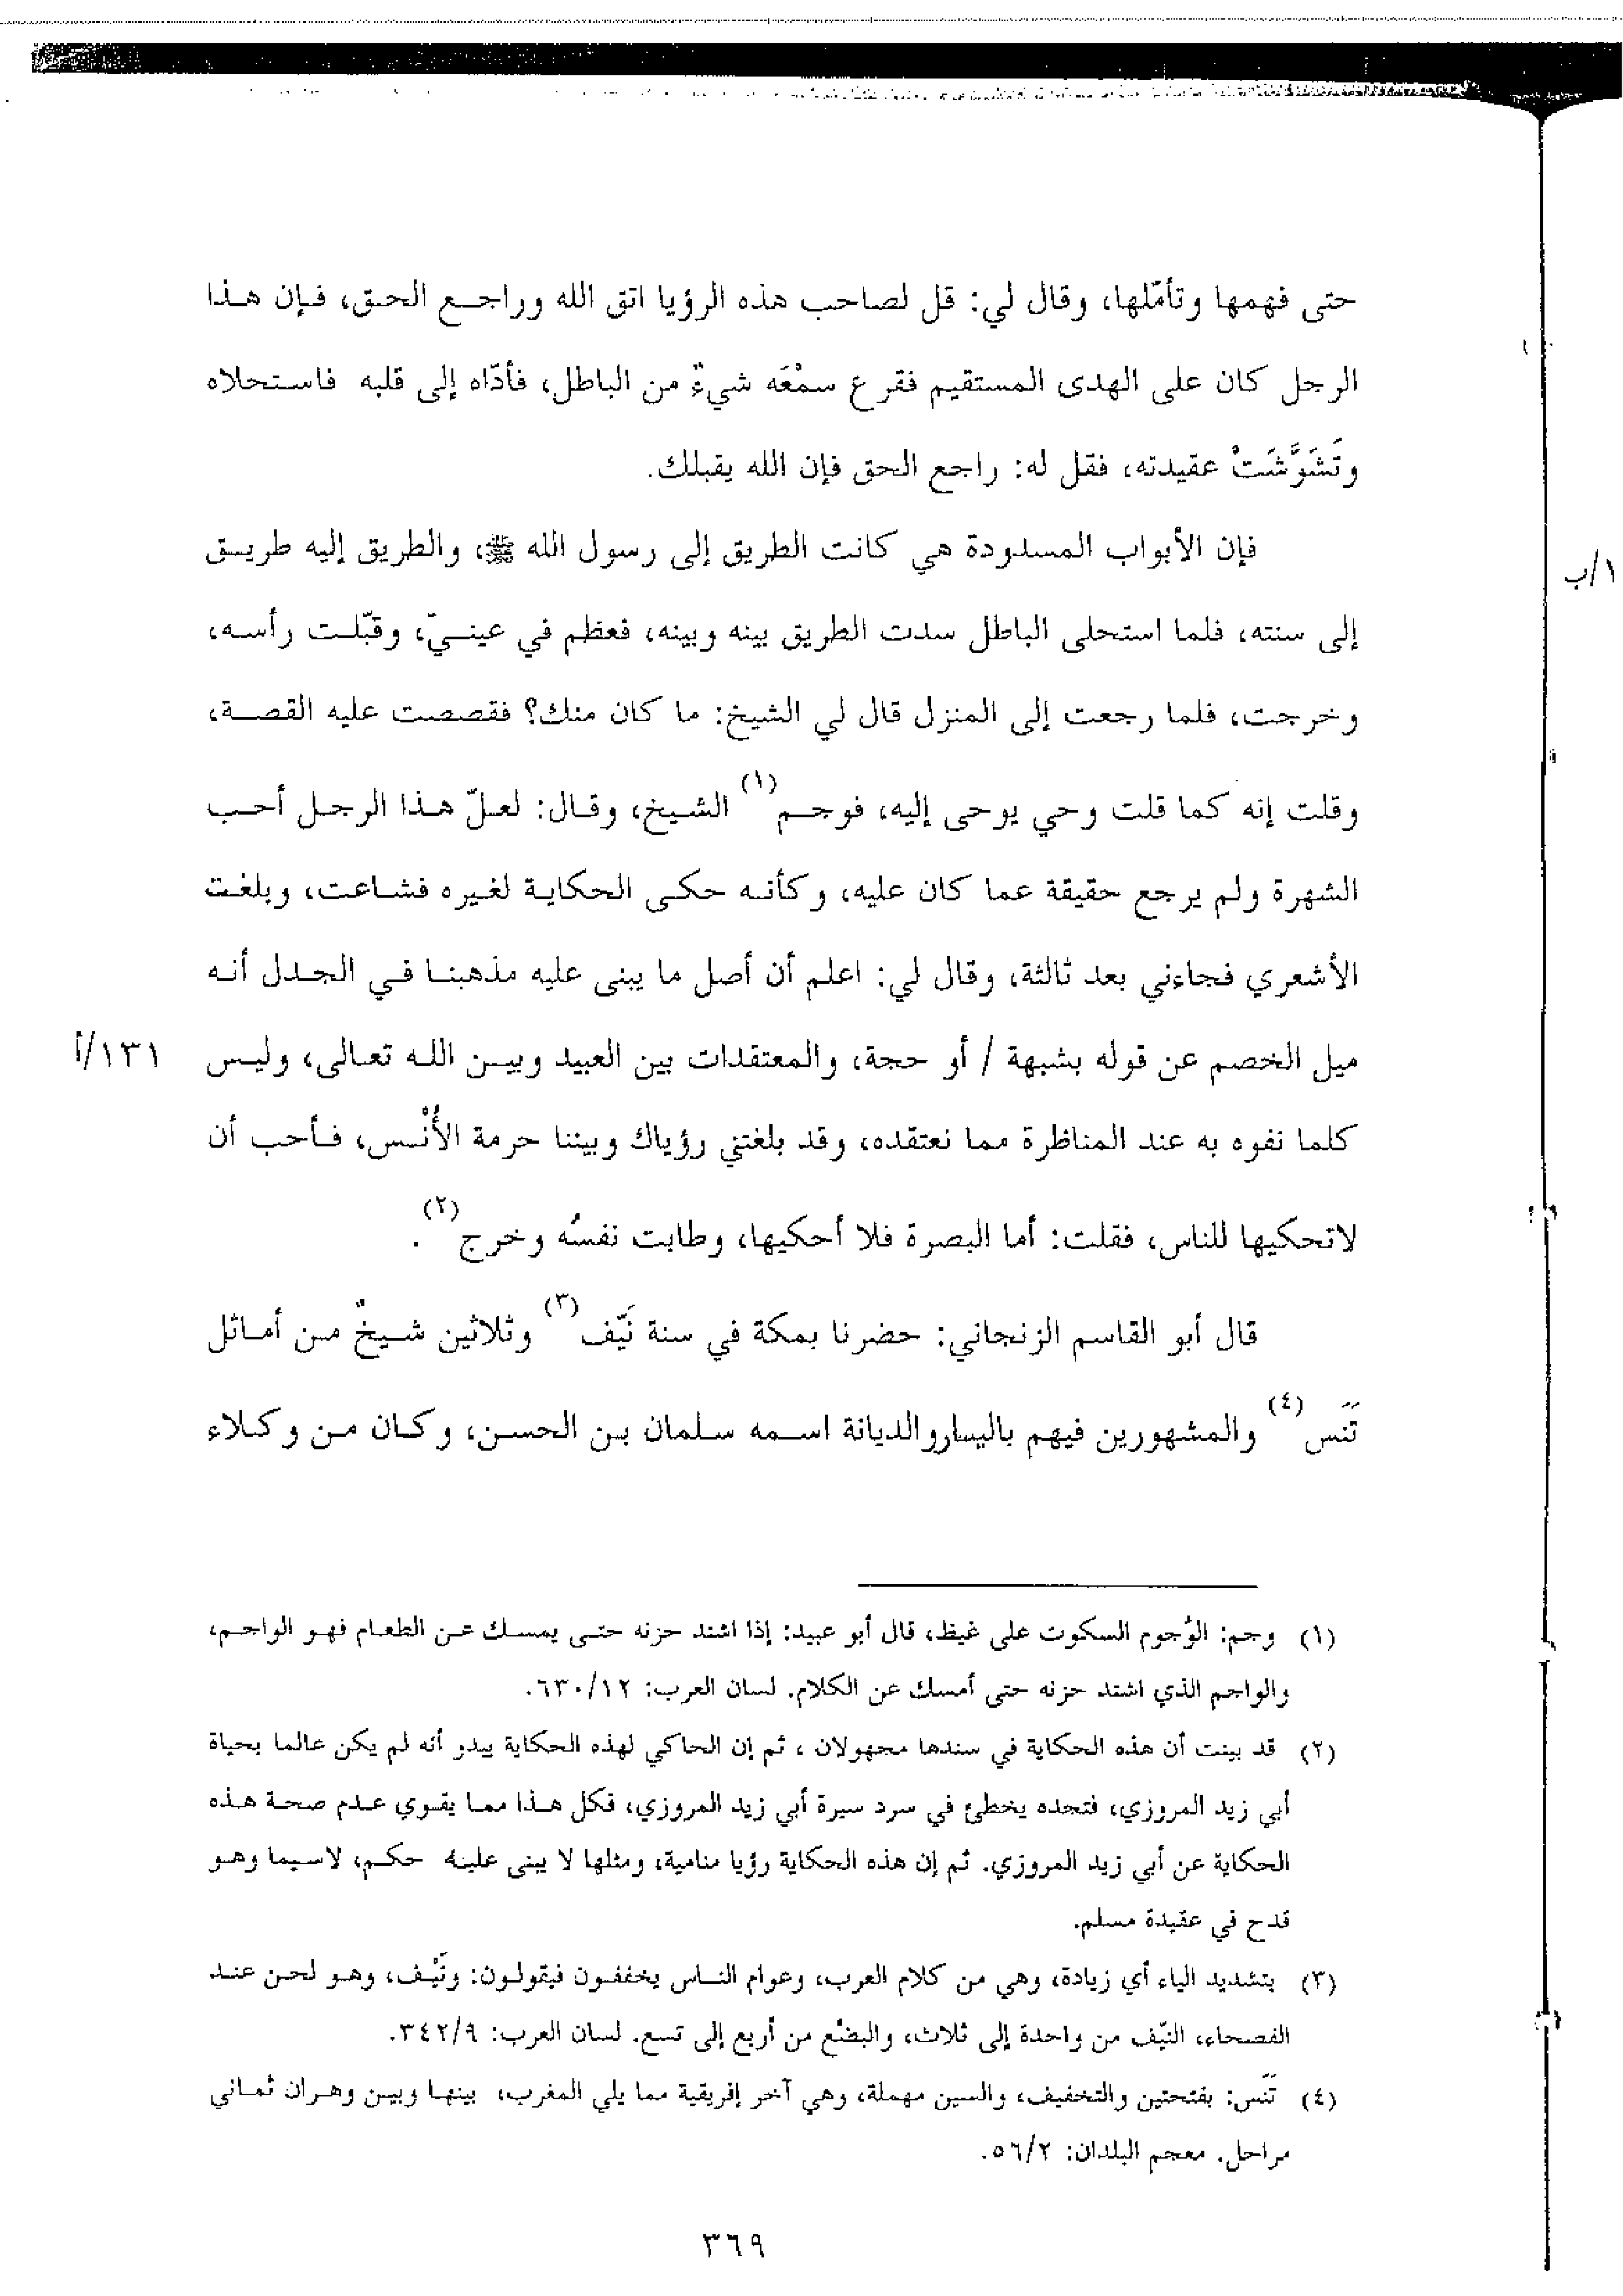 حتى فهمها وتأمّلها، وقال لي: قل لصاحب هذه الرؤيا اتق الله وراجع الحق، فإن هذا
الرجل كان على الهدى المستقيم فقرع سمْعَه شيءٌ من الباطل، فأدّاه إلى قلبه فاستحلاه
وتَشَوَّشَتْ عقيدته، فقل له: راجع الحق فإن الله يقبلك.
فإن الأبواب المسدودة هي كانت الطريق إلى رسول الله ﷺ، والطريق إليه طريق
١/ب
إلى سنته، فلما استحلى الباطل سدت الطريق بينه وبينه، فعظم في عينيّ، وقبّلت رأسه،
وخرجت، فلما رجعت إلى المنزل قال لي الشيخ: ما كان منك؟ فقصصت عليه القصة،
وقلت إنه كما قلت وحي يوحى إليه، فوجم(١) الشيخ، وقال: لعلّ هذا الرجل أحب
الشهرة ولم يرجع حقيقة عما كان عليه، وكأنه حكى الحكاية لغيره فشاعت، وبلغت
الأشعري فجاءني بعد ثالثة، وقال لي: اعلم أن أصل ما يبنى عليه مذهبنا في الجدل أنه
ميل الخصم عن قوله بشبهة / أو حجة، والمعتقدات بين العبيد وبين الله تعالى، وليس
١٣١/أ
كلما نفوه به عند المناظرة مما نعتقده، وقد بلغتني رؤياك وبيننا حرمة الأُنْس، فأحب أن
لاتحكيها للناس، فقلت: أما البصرة فلا أحكيها، وطابت نفسُه وخرج(٢).
قال أبو القاسم الزنجاني: حضرنا بمكة في سنة نَيّف(٣) وثلاثين شيخٌ من أماثل
تَنَس(٤) والمشهورين فيهم باليساروالديانة اسمه سلمان بن الحسن، وكان من وكلاء
(١) وجم: الوُجوم السكوت على غيظ، قال أبو عبيد: إذا اشتد حزنه حتى يمسك عن الطعام فهو الواجم،
والواجم الذي اشتد حزنه حتى أمسك عن الكلام. لسان العرب: ٦٣٠/١٢.
(٢) قد بينت أن هذه الحكاية في سندها مجهولان ، ثم إن الحاكي لهذه الحكاية يبدو أنه لم يكن عالما بحياة
أبي زيد المروزي، فتجده يخطئ في سرد سيرة أبي زيد المروزي، فكل هذا مما يقوي عدم صحة هذه
الحكاية عن أبي زيد المروزي. ثم إن هذه الحكاية رؤيا منامية، ومثلها لا يبنى عليه حكم، لاسيما وهو
قدح في عقيدة مسلم.
(٣) بتشديد الياء أي زيادة، وهي من كلام العرب، وعوام الناس يخففون فيقولون: ونَيْف، وهو لحن عند
الفصحاء، النيّف من واحدة إلى ثلاث، والبضْع من أربع إلى تسع. لسان العرب: ٣٤٢/٩.
(٤) تَنَس: بفتحتين والتخفيف، والسين مهملة، وهي آخر إفريقية مما يلي المغرب، بينها وبين وهران ثماني
مراحل. معجم البلدان: ٥٦/٢.
٣٦٩